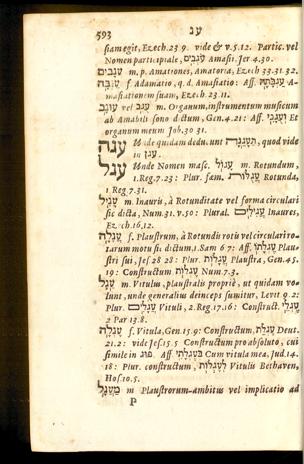 593 ענ
siam egit, Ezech. 23 9. vide & v. 5.12. Partic. vel
Nomen participiale, עֹגְבִים Amasii, Jer 4.30.
עֲגָבִים m. p. Amatrones, Amatoria, Ezech 33.31.32.
f Adamatio, q. d. Amasiatio: Aff עַגְבָתָהּ A-
masiationem suam, Ezech. 23.11.
עוּגָב vel עֻגָב m. Organum, instrumentum musicum
ab Amabili sono dictum, Gen. 4.21: Aff וְעֻגָבִי Et
organum meum Job. 30 31.
Unde quidam deducunt quod vide
in עגן
עגל Unde Nomen masc. עָגוֹל m. Rotundum,
1. Reg. 7.23: Plur. fœm. עֲגֻלוֹת Rotunda,
1 Reg. 7.31.
עָגִיל m. Inauris, à Rotunditate vel forma circulari
sic dicta, Num. 31. v. 50: Plural עֲגִילִים Inaures,
Ezech. 16.12.
עֲגָלָה f. Plaustrum, à Rotundi rotis vel circulari ro-
tarum motu sic dictum. 1. Sam 6 7: Aff. Plau-
stri sui, Jes 28 28: Plur. עֲגָלוֹת Plaustra, Gen. 45.
19: Constructum Num. 7.3.
עֵגֶל m. Vitulus, plaustralis propriè, ut quidam vo-
lunt, unde generalius deinceps sumitur, Levit 9.2:
Plur. עֲגָלִים Vituli, 2. Reg. 17.16: Construct. עֶגְלֵי
2 Par 13.8.
עֶגְלָה f. Vitula, Gen. 15.9: Constructum, עֶגְלַת Deut.
21.2: vide Jes. 15.5 Constructum pro absoluto, cui
simile in Aff בְּעֶגְלָתִי Cum vitula mea, Jud. 14.
18: Plur. constructum, לְעֶגְלוֹת Vitulis Bethaven,
Hos. 10.5.
מַעְגָּל m Plaustrorum-ambitus vel implicatio ad
P